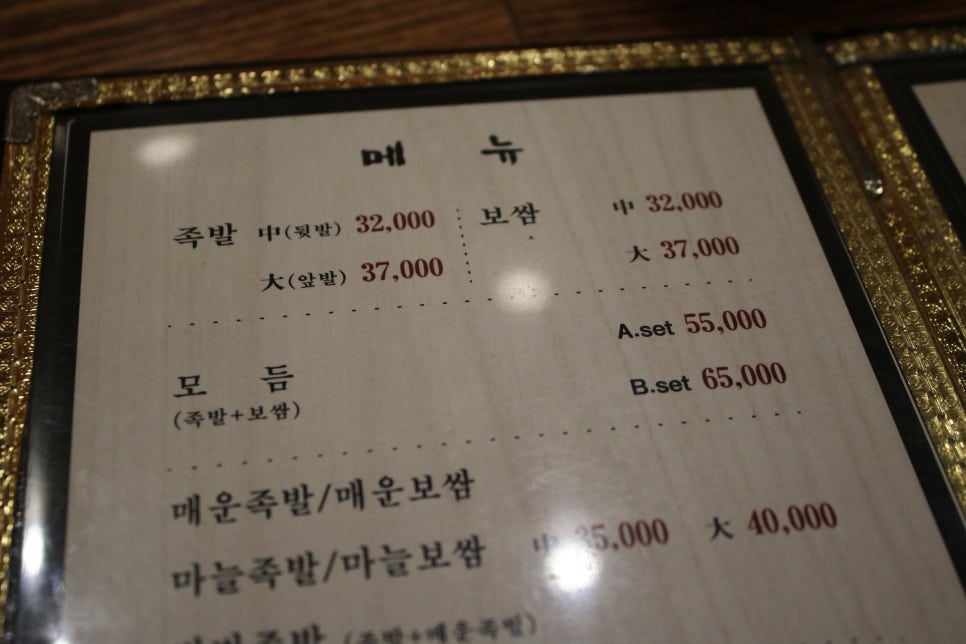 메 뉴
족발 中(뒷발) 32,000
大(앞발) 37,000
보쌈 中 32,000
大 37,000
모 듬
(족발+보쌈)
A.set 55,000
B.set 65,000
매운족발/매운보쌈
마늘족발/마늘보쌈
中 35,000 大 40,000
족발 (족발+매운족발)